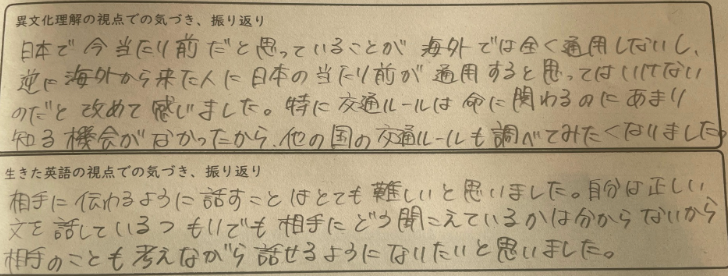 異文化理解の視点での気づき、振り返り
日本で今当たり前だと思っていることが海外では全く通用しないし、
逆に海外から来た人に日本の当たり前が通用すると思ってはいけない
のだと改めて感じました。特に交通ルールは命に関わるのにあまり
知る機会がなかったから、他の国の交通ルールも調べてみたくなりました。
生きた英語の視点での気づき、振り返り
相手に伝わるように話すことはとても難しいと思いました。自分は正しい
文を話しているつもりでも相手にどう聞こえているかは分からないから
相手のことも考えながら話せるようになりたいと思いました。